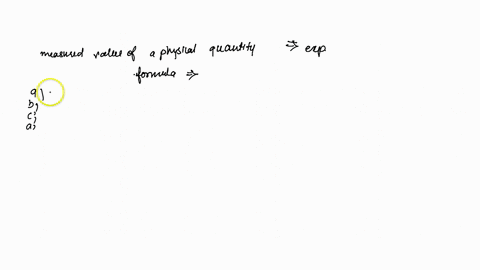 measured value of a physical quantity ⇒ exp
formula ⇒
a,
b,
c,
a,